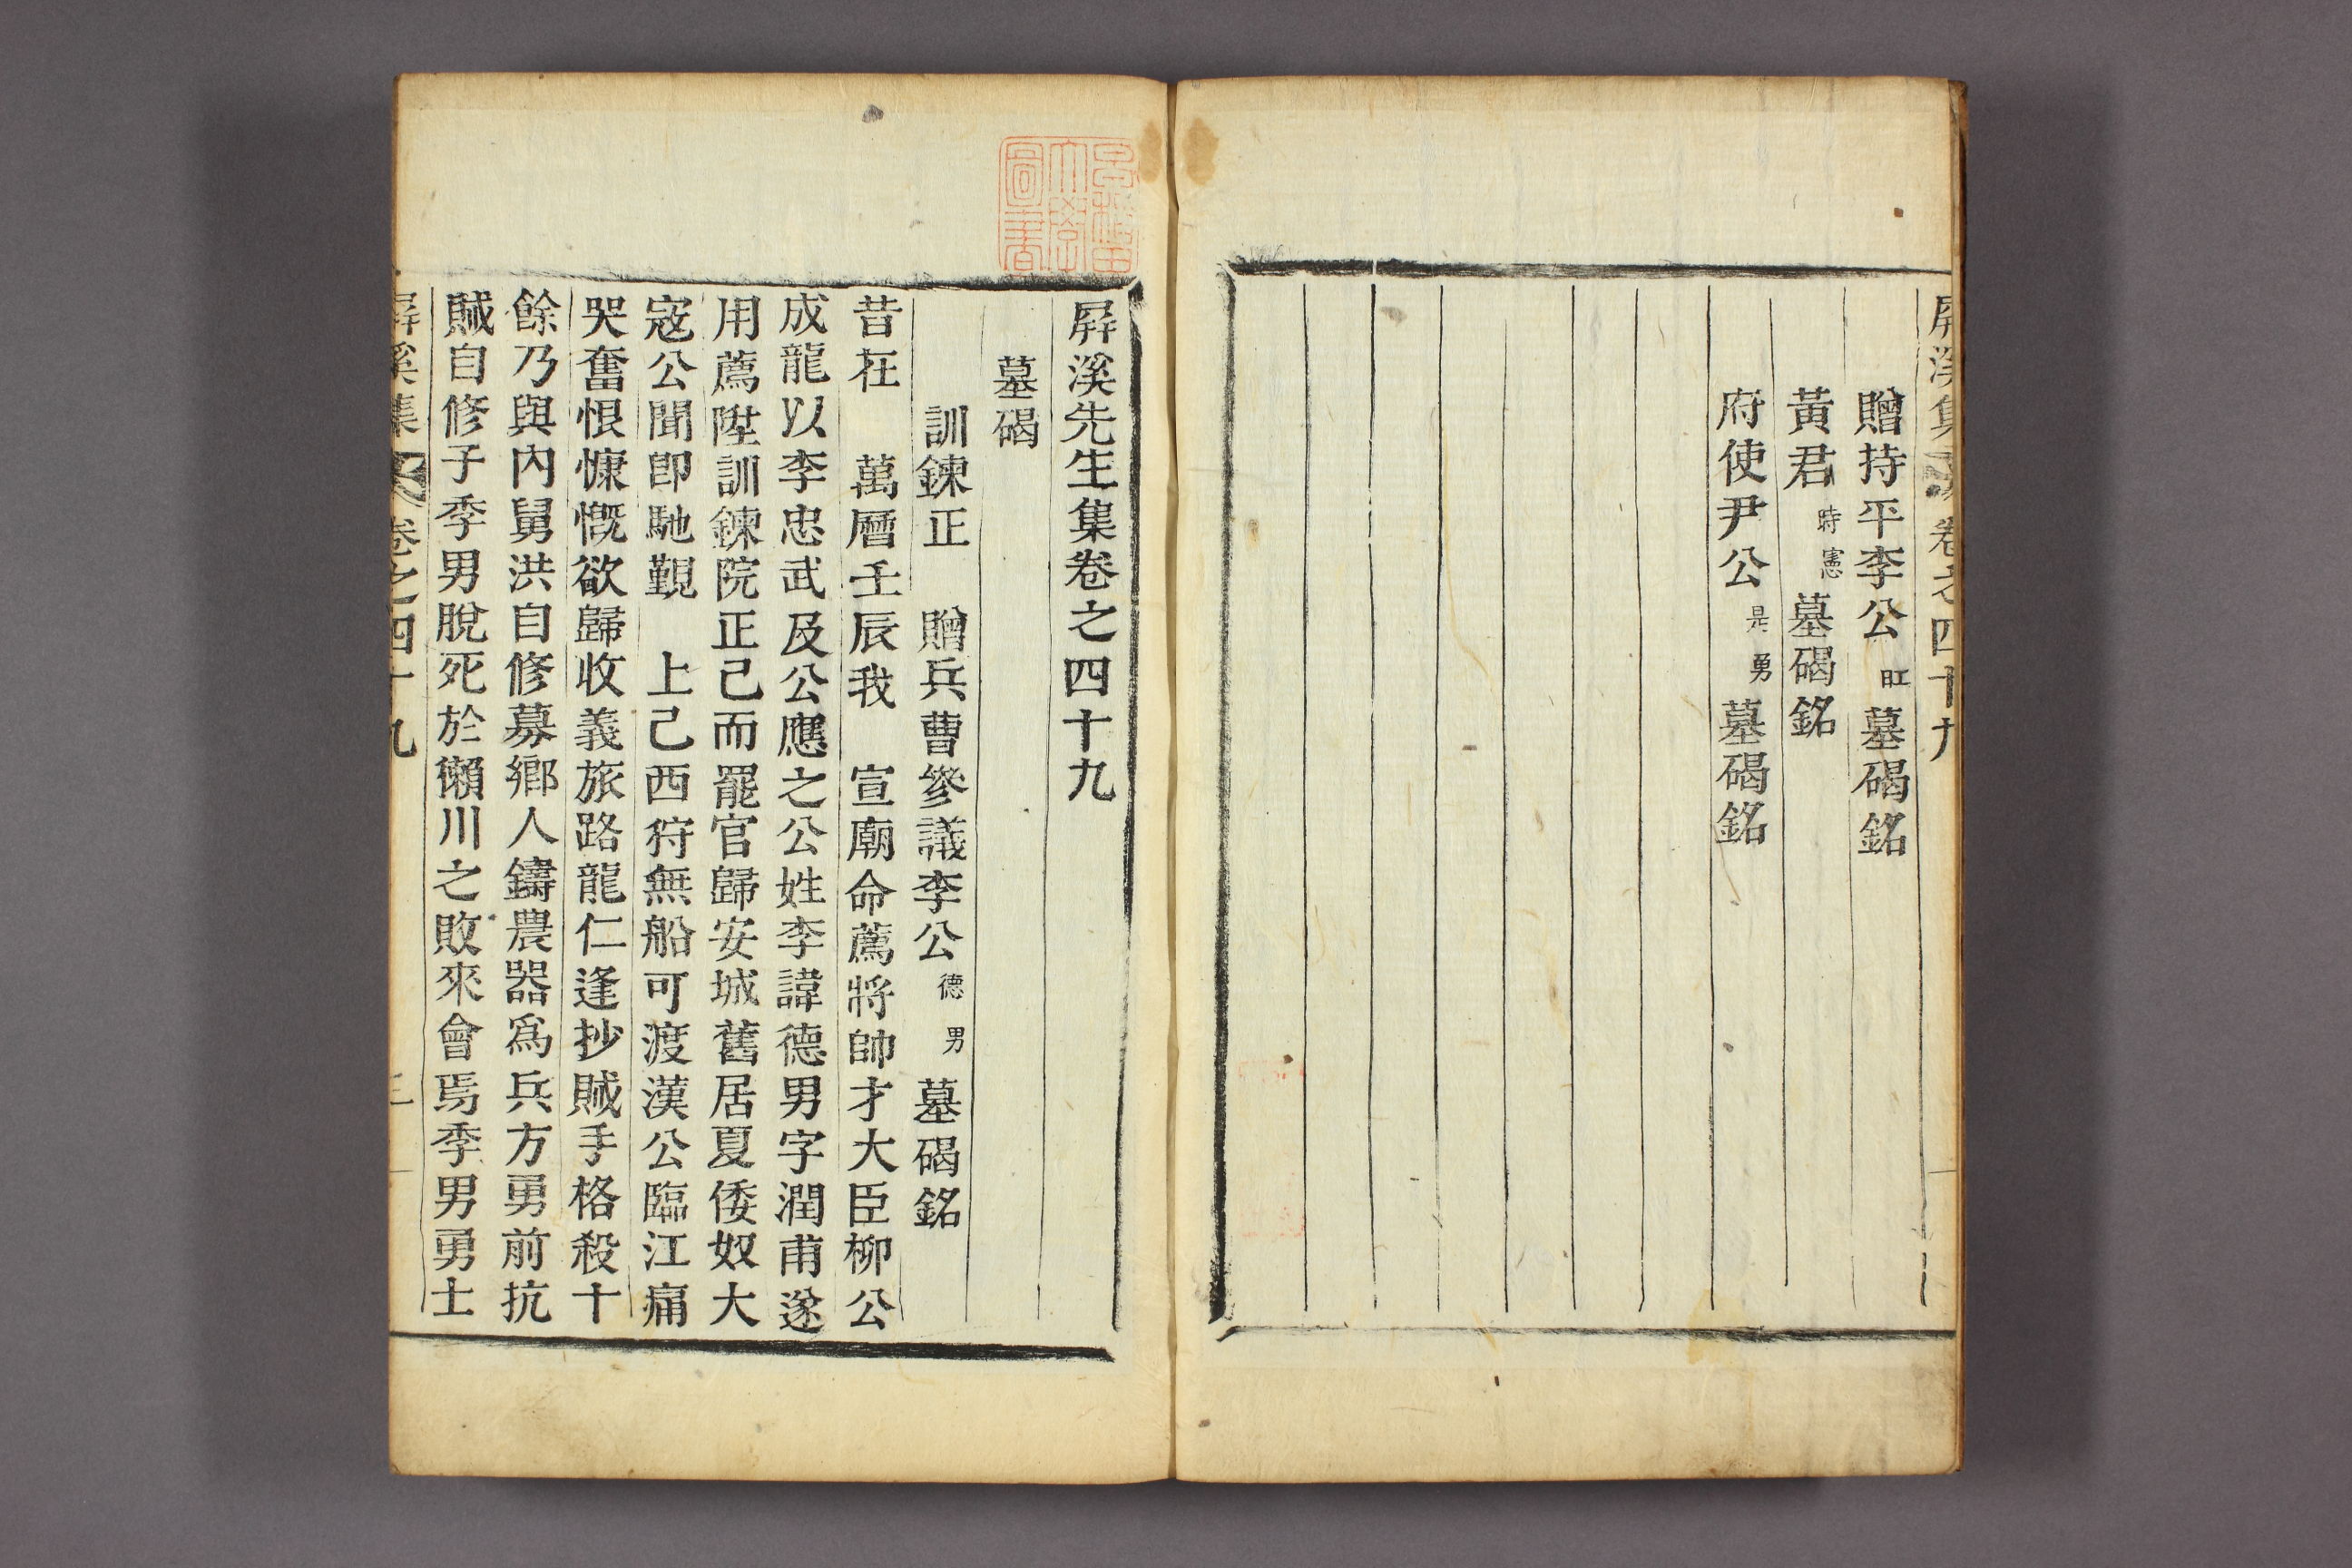 屛溪集 卷之四十九
贈持平李公 旺 墓碣銘
黃君 時憲 墓碣銘
府使尹公 是勇 墓碣銘
早稻田
大學
圖書
屛溪先生集卷之四十九
墓碣
訓鍊正 贈兵曹參議李公 德男 墓碣銘
昔在 萬曆壬辰我 宣廟命薦將帥才大臣柳公
成龍以李忠武及公應之公姓李諱德男字潤甫遂
用薦陞訓鍊院正己而罷官歸安城舊居夏倭奴大
寇公聞卽馳覲 上己西狩無船可渡漢公臨江痛
哭奮恨慷慨欲歸收義旅路龍仁逢抄賊手格殺十
餘乃與內舅洪自修募鄕人鑄農器爲兵方勇前抗
賊自修子季男脫死於懶川之敗來會焉季男勇士
屛溪集 卷之四十九